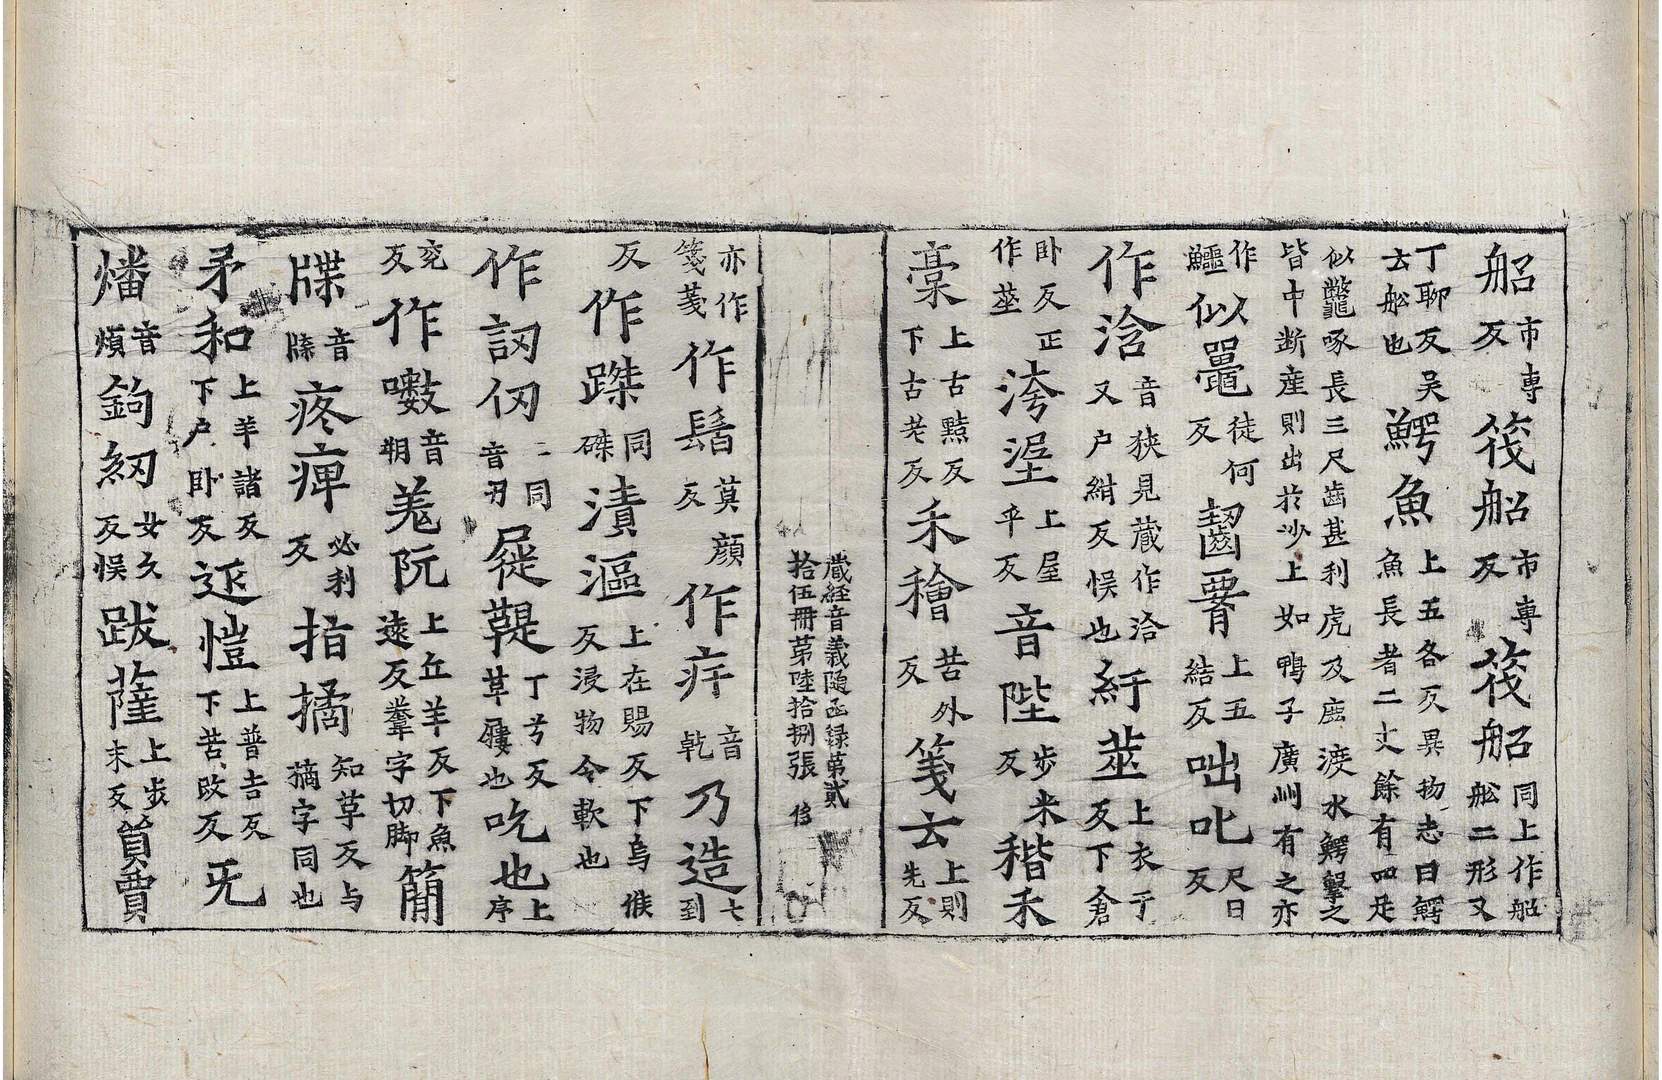 舩市專反筏舩市專反筏舩同上作船舩二形又
丁聊反吴云舩也鰐魚上五各反異物志曰鰐魚長者二丈餘有四足
似鼉啄長三尺齒甚利虎及鹿渡水鰐擊之皆中断産則出扵沙上如鴨子廣州有之亦
作鱷似鼉徒何反齧䯊上五結反咄叱尺日反
作浛音狭見蔵作洽又户紺反悮也紆莝上衣于反下倉
卧反正作莝洿浧上屋乎反音陛步米反稭禾
稾上古黠反下古老反禾穧苦外反箋云上則先反
蔵経音義隨函録第貳
拾伍冊第陸拾捌張
亦作箋菚作髺莫顔反作㾍音乹乃造七到
反作蹀同磔漬漚上在賜反下烏候反浸物令軟也
作訒仞二同音刃屣鞮丁兮反草屨也吃也上序
兖反作噭音朝羗阮上丘羊反下魚遠反鞶字切脚簡
牒音牒疼痺必利反指擿知草反与摘字同也
矛和上羊諸反下户卧反迩愷上普告反下苦改反旡
燔音煩鉤紉女久反悮跋薩上步末反質賈